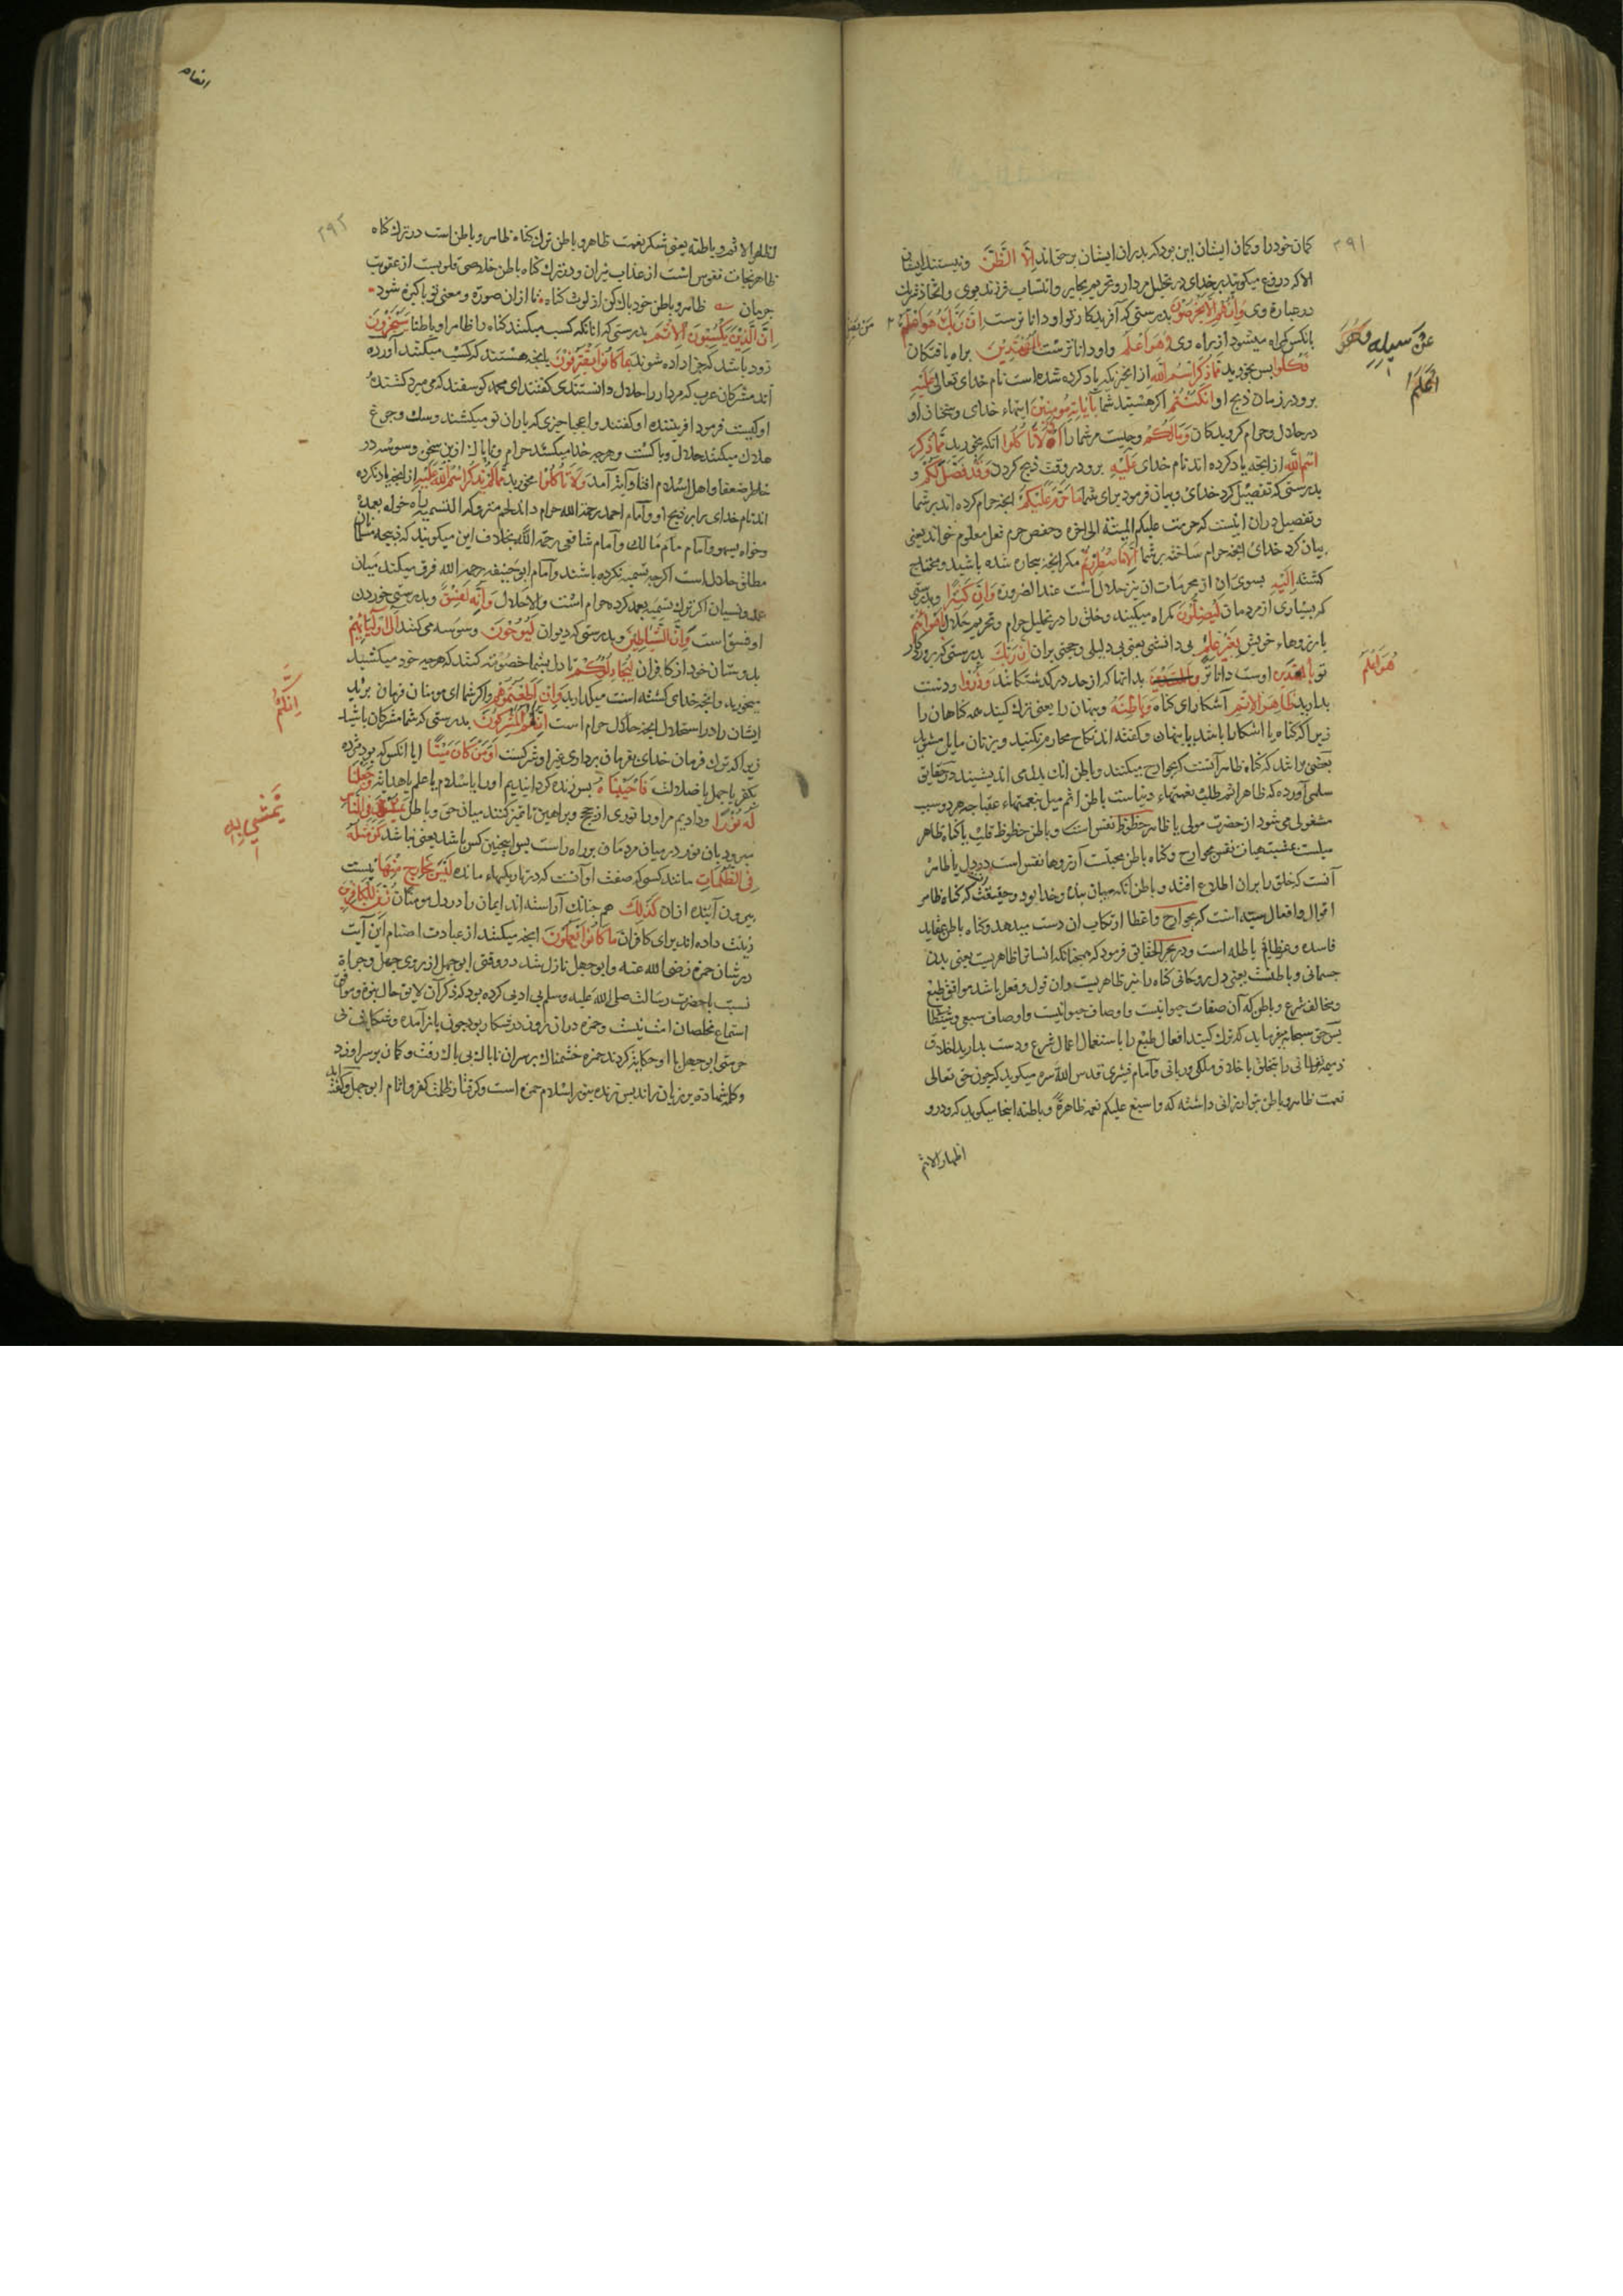 ٣٩١
کمان خود را و کمان ایشان این بود که پدران ایشان بر حق اند إِلَّا الظَّنَّ و نیستند ایشان
الا که دروغ میکویند بر خدای در تحلیل مردار و تحریم بحایر و انتساب فرزند بوی و اتخاذ
در عبارة وی وَاِنْ هُمْ اِلَّا یَخْرُصُوْنَ بدرستی که آفریدکار تو او داناترست اِنَّ رَبَّكَ هُوَ اَعْلَمُ
بانکس که کمراه میشود از راه وی وَهُوَ اَعْلَمُ و او داناترست بِالْمُهْتَدِیْنَ براه یافتکان
عَنْ سَبِیلِهِ وَهُوَ
اَعْلَمُ
فَكُلُوا پس بخورید مِمَّا ذُكِرَ اسْمُ اللّٰهِ از انچیزکه یاد کرده شده است نام خدای تعالی عَلَیْهِ
برو در زمان ذبح او اِنْ كُنْتُمْ اکر هستید شما بِاٰیَاتِهِ مُؤْمِنِیْنَ
در حلال و حرام کرویدکان وَمَا لَكُمْ و چیست مر شما را اَلَّا تَأْكُلُوا انکه نخورید مِمَّا ذُكِرَ
اسْمُ اللّٰهِ از انچه یاد کرده اند نام خدای عَلَیْهِ برو در وقت ذبح کردن وَقَدْ فَصَّلَ لَكُمْ و
بدرستی که تفصیل کرد خدای و بیان فرمود برای شما مَا حَرَّمَ عَلَیْكُمْ انچه حرام کرده اند بر شما
و تفصیل در ان اینست که حرمت علیکم المیتة الی اخره و حفص حرم فعل معلوم خواند یعنی
بیان کرد خدای انچه حرام ساخته بر شما اِلَّا مَا اضْطُرِرْتُمْ مکر انچه بیچاره شده باشید و محتاج
کشته اِلَیْهِ بسوی ان از محرمات ان نیز حلال است عند الضرورة وَاِنَّ كَثِیْرًا و بدرستی
که بسیاری از مردمان لَیُضِلُّوْنَ کمراه میکنند و خلق را در تحلیل حرام و تحریم حلال بِاَهْوَائِهِمْ
بارزوهاء خویش بِغَیْرِ عِلْمٍ بی دانشی یعنی بی دلیلی و حجتی بران اِنَّ رَبَّكَ بدرستی که پروردکار
هُوَ اَعْلَمُ
تو اوست داناتر بدانها که از حد در کذشتکانند وَذَرُوْا و دست
بدارید ظَاهِرَ الْاِثْمِ آشکارای کناه وَبَاطِنَهُ و پنهان را یعنی ترک کنید همه کناهان را
زیرا که کناه یا اشکارا باشد یا پنهان و کفته اند نکاح محارم مکنید و بزنان مایل مشوید
بعضی براند که کناه ظاهر آنست که بجوارح میکنند و باطن انک بدل می اندیشند در حقایق
سلمی آورده که ظاهر اثم طلب نعمتهاء دنیاست باطن اثم میل بنعمتهاء عقبا چه هر دو سبب
مشغولی می شود از حضرت مولی یا ظاهر حظوظ نفس است و باطن حظوظ قلب یا کناه ظاهر
آنست که خلق را بران اطلاع افتد و باطن آنکه میان بنده و خدا بود و حقیقت که کناه ظاهر
اقوال و افعال سیئه است که بجوارح و اعضا ارتکاب ان دست میدهد و کناه باطن عقاید
فاسده و باطله است و در بحر الحقایق فرمود که همچنانکه انسان را ظاهریست یعنی بدن
جسمانی و باطنیست یعنی دل روحانی کناه را نیز ظاهریست و ان قول و فعل باشد موافق طبع
و مخالف شرع و باطن که آن صفات حیوانیت و اوصاف سبعی
پس حق سبحانه میفرماید که ترک کنید افعال طبع را باستعمال اعمال شرع و دست بدارید اخلاق
ذمیمه را بتخلق باخلاق ملکی و ربانی و امام قشیری قدس الله سره میکوید که چون حق تعالی
نعمت ظاهر و باطن بتو ارزانی داشته که و اسبغ علیکم نعمه ظاهرة و باطنة اینجا میکوید که و ذروا
اظهار الاثم
انعام
٣٩٢
ظاهر الاثم و باطنه یعنی شکر نعمت ظاهر و باطن ترک کناه ظاهر و باطن است در ترک کناه
ظاهر نجات نفوس است از عذاب نیران و در ترک کناه باطن خلاصی قلوبست از عقوبت
ظاهر و باطن خود پاک کن از لوث کناه تا ازان صورة و معنی تو پاکیزه شود
اِنَّ الَّذِیْنَ یَكْسِبُوْنَ الْاِثْمَ بدرستی که انانکه کسب میکنند کناه را ظاهرا و باطنا سَیُجْزَوْنَ
زود باشد که جزا داده شوند بِمَا كَانُوْا یَقْتَرِفُوْنَ بانچه هستند که کسب میکنند آورده
اند مشرکان عرب که مردار را حلال دانستندی کفتند ای محمد کوسفند که می میرد کشندهٔ
او کیست فرمود افریننده او کفتند و اعجبا چیزی که یاران تو میکشند و سک و چرغ
هلاک میکنند حلال و پاکست و هرچه خدا میکشد حرام و ناپاک ازین سخن وسوسه در
خاطر ضعفاء اهل اسلام افتاد آیة آمد وَلَا تَأْكُلُوا مخورید مِمَّا لَمْ یُذْكَرِ اسْمُ اللّٰهِ عَلَیْهِ از انچه یاد نکرده
اند نام خدای را بر ذبح او و امام احمد رحمه الله حرام داند لحم متروک التسمیه را خواه بعمد
و خواه بسهو و امام مالک و امام شافعی رحمه الله بخلاف این میکویند که ذبیحه مسلمان
مطلق حلال است اکرچه تسمیه نکرده باشند و امام ابوحنیفه رحمه الله فرق میکند میان
عمد و نسیان اکر ترک تسمیه بعمد کرده حرام است و الا حلال وَاِنَّهُ لَفِسْقٌ و بدرستی خوردن
او فسق است وَاِنَّ الشَّیَاطِیْنَ و بدرستی که دیوان لَیُوْحُوْنَ وسوسه می کنند اِلٰی اَوْلِیَائِهِمْ
بدوستان خود از کافران لِیُجَادِلُوْكُمْ تا دل بشما خصومت کنند که هرچه خود میکشید
میخورید و انچه خدای کشته است میکذارید وَاِنْ اَطَعْتُمُوْهُمْ و اکر شما ای مومنان فرمان برید
اِنَّكُمْ
ایشان را در استحلال انچه حرام است اِنَّكُمْ لَمُشْرِكُوْنَ بدرستی که شما مشرکان باشید
زیرا که ترک فرمان خدای بفرمان برداری غیر او شرکست اَوَمَنْ كَانَ مَیْتًا ایا انکس که بود مرده
بکفر یا جهل یا ضلالت فَاَحْیَیْنَاهُ پس زنده کردانیدیم او را باسلام یا علم یا هدایة وَجَعَلْنَا
لَهُ نُوْرًا و دادیم مر او را نوری از حجج و براهین تا تمیز کند میان حق و باطل فِی النَّاسِ
یَمْشِیْ بِهِ
میرود بان نور در میان مردمان بر راه راست پس اینچنین کس باشد یعنی نباشد كَمَنْ مَثَلُهُ
فِی الظُّلُمَاتِ مانند کسی که صفت او آنست که در تاریکیهاء مانده لَیْسَ بِخَارِجٍ مِنْهَا نیست
بیرون آینده ازان كَذٰلِكَ هم چنانک آراسته اند ایمان را در دل مومنان زُیِّنَ لِلْكَافِرِیْنَ
زینت داده اند برای کافران مَا كَانُوْا یَعْمَلُوْنَ انچه میکنند از عبادت اصنام این آیت
در شان حمزه رضی الله عنه و ابو جهل نازل شد در وقتی ابو جهل از روی جهل و جراة
نسبت باحضرت رسالت صلی الله علیه و سلم بی ادبی کرده بود که ذکر آن لایق حال نبوة
استماع مخلصان امت نیست و حمزه دران روز در شکار بود چون باز آمده
ابو جهل با او حکایة کردند حمزه خشمناک بر سر ان ناپاک بی باک رفت و کمان بر سر او زد
و کلمه شهادة بر زبان راند پس زنده بنور اسلام حمزه است و کرفتار ظلمت کفر و آثام ابو جهل